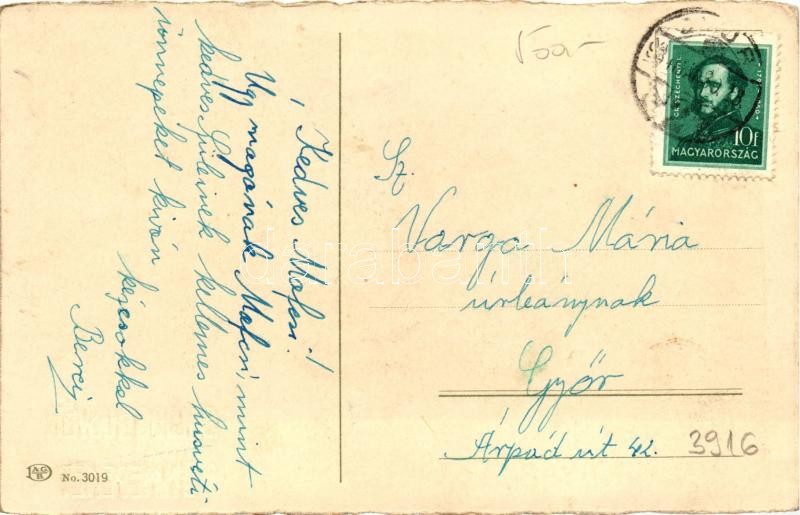 Kedves Mafcsi!
Úgy magának Mafcsi, mint
kedves Szüleinek kellemes húsvéti
ünnepeket kíván
kézcsókkal
Berci
No. 3019
GR. SZÉCHENYI I.
10f
MAGYARORSZÁG
Sz.
Varga Mária
úrleánynak
Győr
Árpád út 42.
3916
darabanth